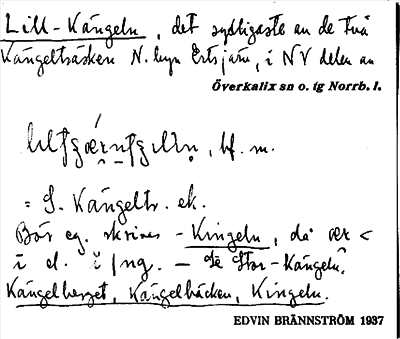 Lill-Kängeln, det sydligaste av de två
Kängelträsken N. byn Ertsjärv, i NV delen av
Överkalix sn o. tg Norrb. l.
bf. m.
= S. Kängeltr. ek.
Bör eg. skrivas -Kingeln, då æ <
i el. ĭ / ng. — Se Stor-Kängeln,
Kängelberget, Kängelbäcken, Kingeln.
EDVIN BRÄNNSTRÖM 1937